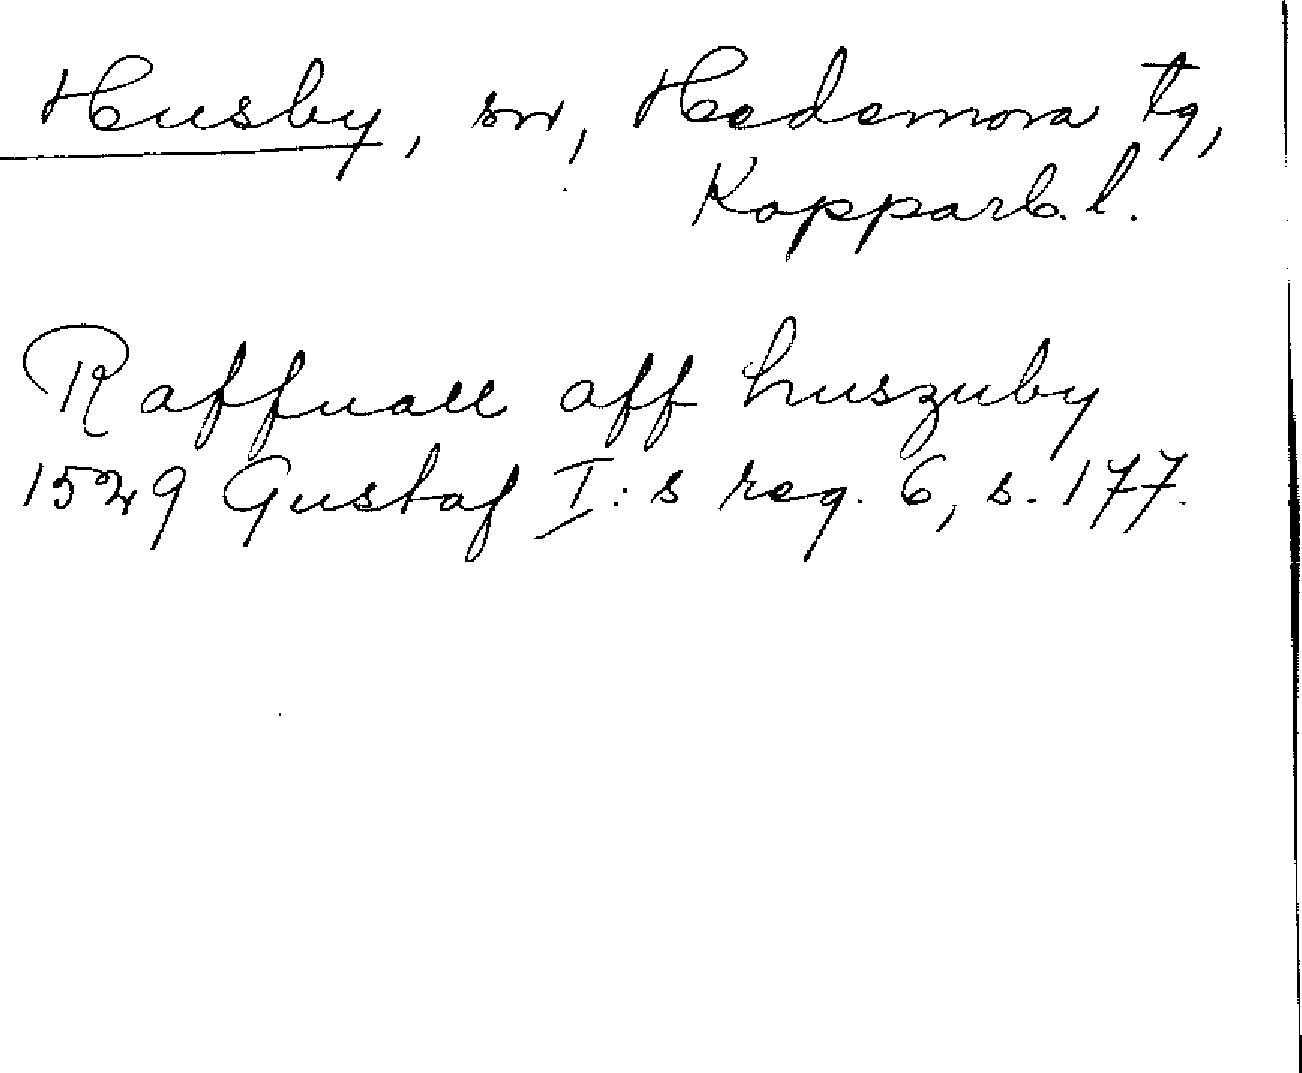 Husby, sn, Hedemora tg,
Kopparb. l.
Raffuall aff huszuby
1529 Gustaf I:s reg. 6, s. 177.